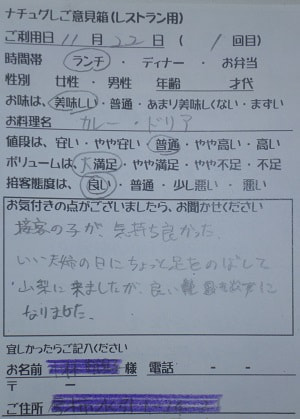 ナチュグレご意見箱(レストラン用)
ご利用日 11 月 22 日 ( 1 回目)
時間帯 ランチ ・ ディナー ・ お弁当
性別 女性 ・ 男性 年齢 才代
お味は、 美味しい ・ 普通 ・ あまり美味しくない ・ まずい
お料理名 カレー・ドリア
値段は、 安い ・ やや安い ・ 普通 ・ やや高い ・ 高い
ボリュームは、 大満足 ・ やや満足 ・ やや不足 ・ 不足
接客態度は、 良い ・ 普通 ・ 少し悪い ・ 悪い
お気付きの点がございましたら、お聞かせください
接客の子が、気持ち良かった
いい夫婦の日にちょっと足をのばして
山梨に来ましたが、良い
になりました。
宜しかったらご記入ください
お名前 様 電話 - -
〒 -
ご住所